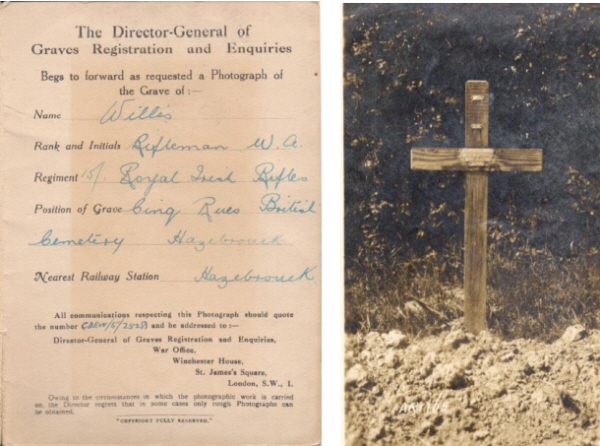 The Director-General of
Graves Registration and Enquiries
Begs to forward as requested a Photograph of
the Grave of :—
Name Willis
Rank and Initials Rifleman W. A.
Regiment 15/. Royal Irish Rifles
Position of Grave Cinq Rues British
Cemetery Hazebrouck
Nearest Railway Station Hazebrouck
All communications respecting this Photograph should quote
the number and be addressed to :—
Director-General of Graves Registration and Enquiries,
War Office,
Winchester House,
St. James's Square,
London, S.W., 1.
Owing to the circumstances in which the photographic work is carried
on, the Director regrets that in some cases only rough Photographs can
be obtained.
"COPYRIGHT FULLY RESERVED."